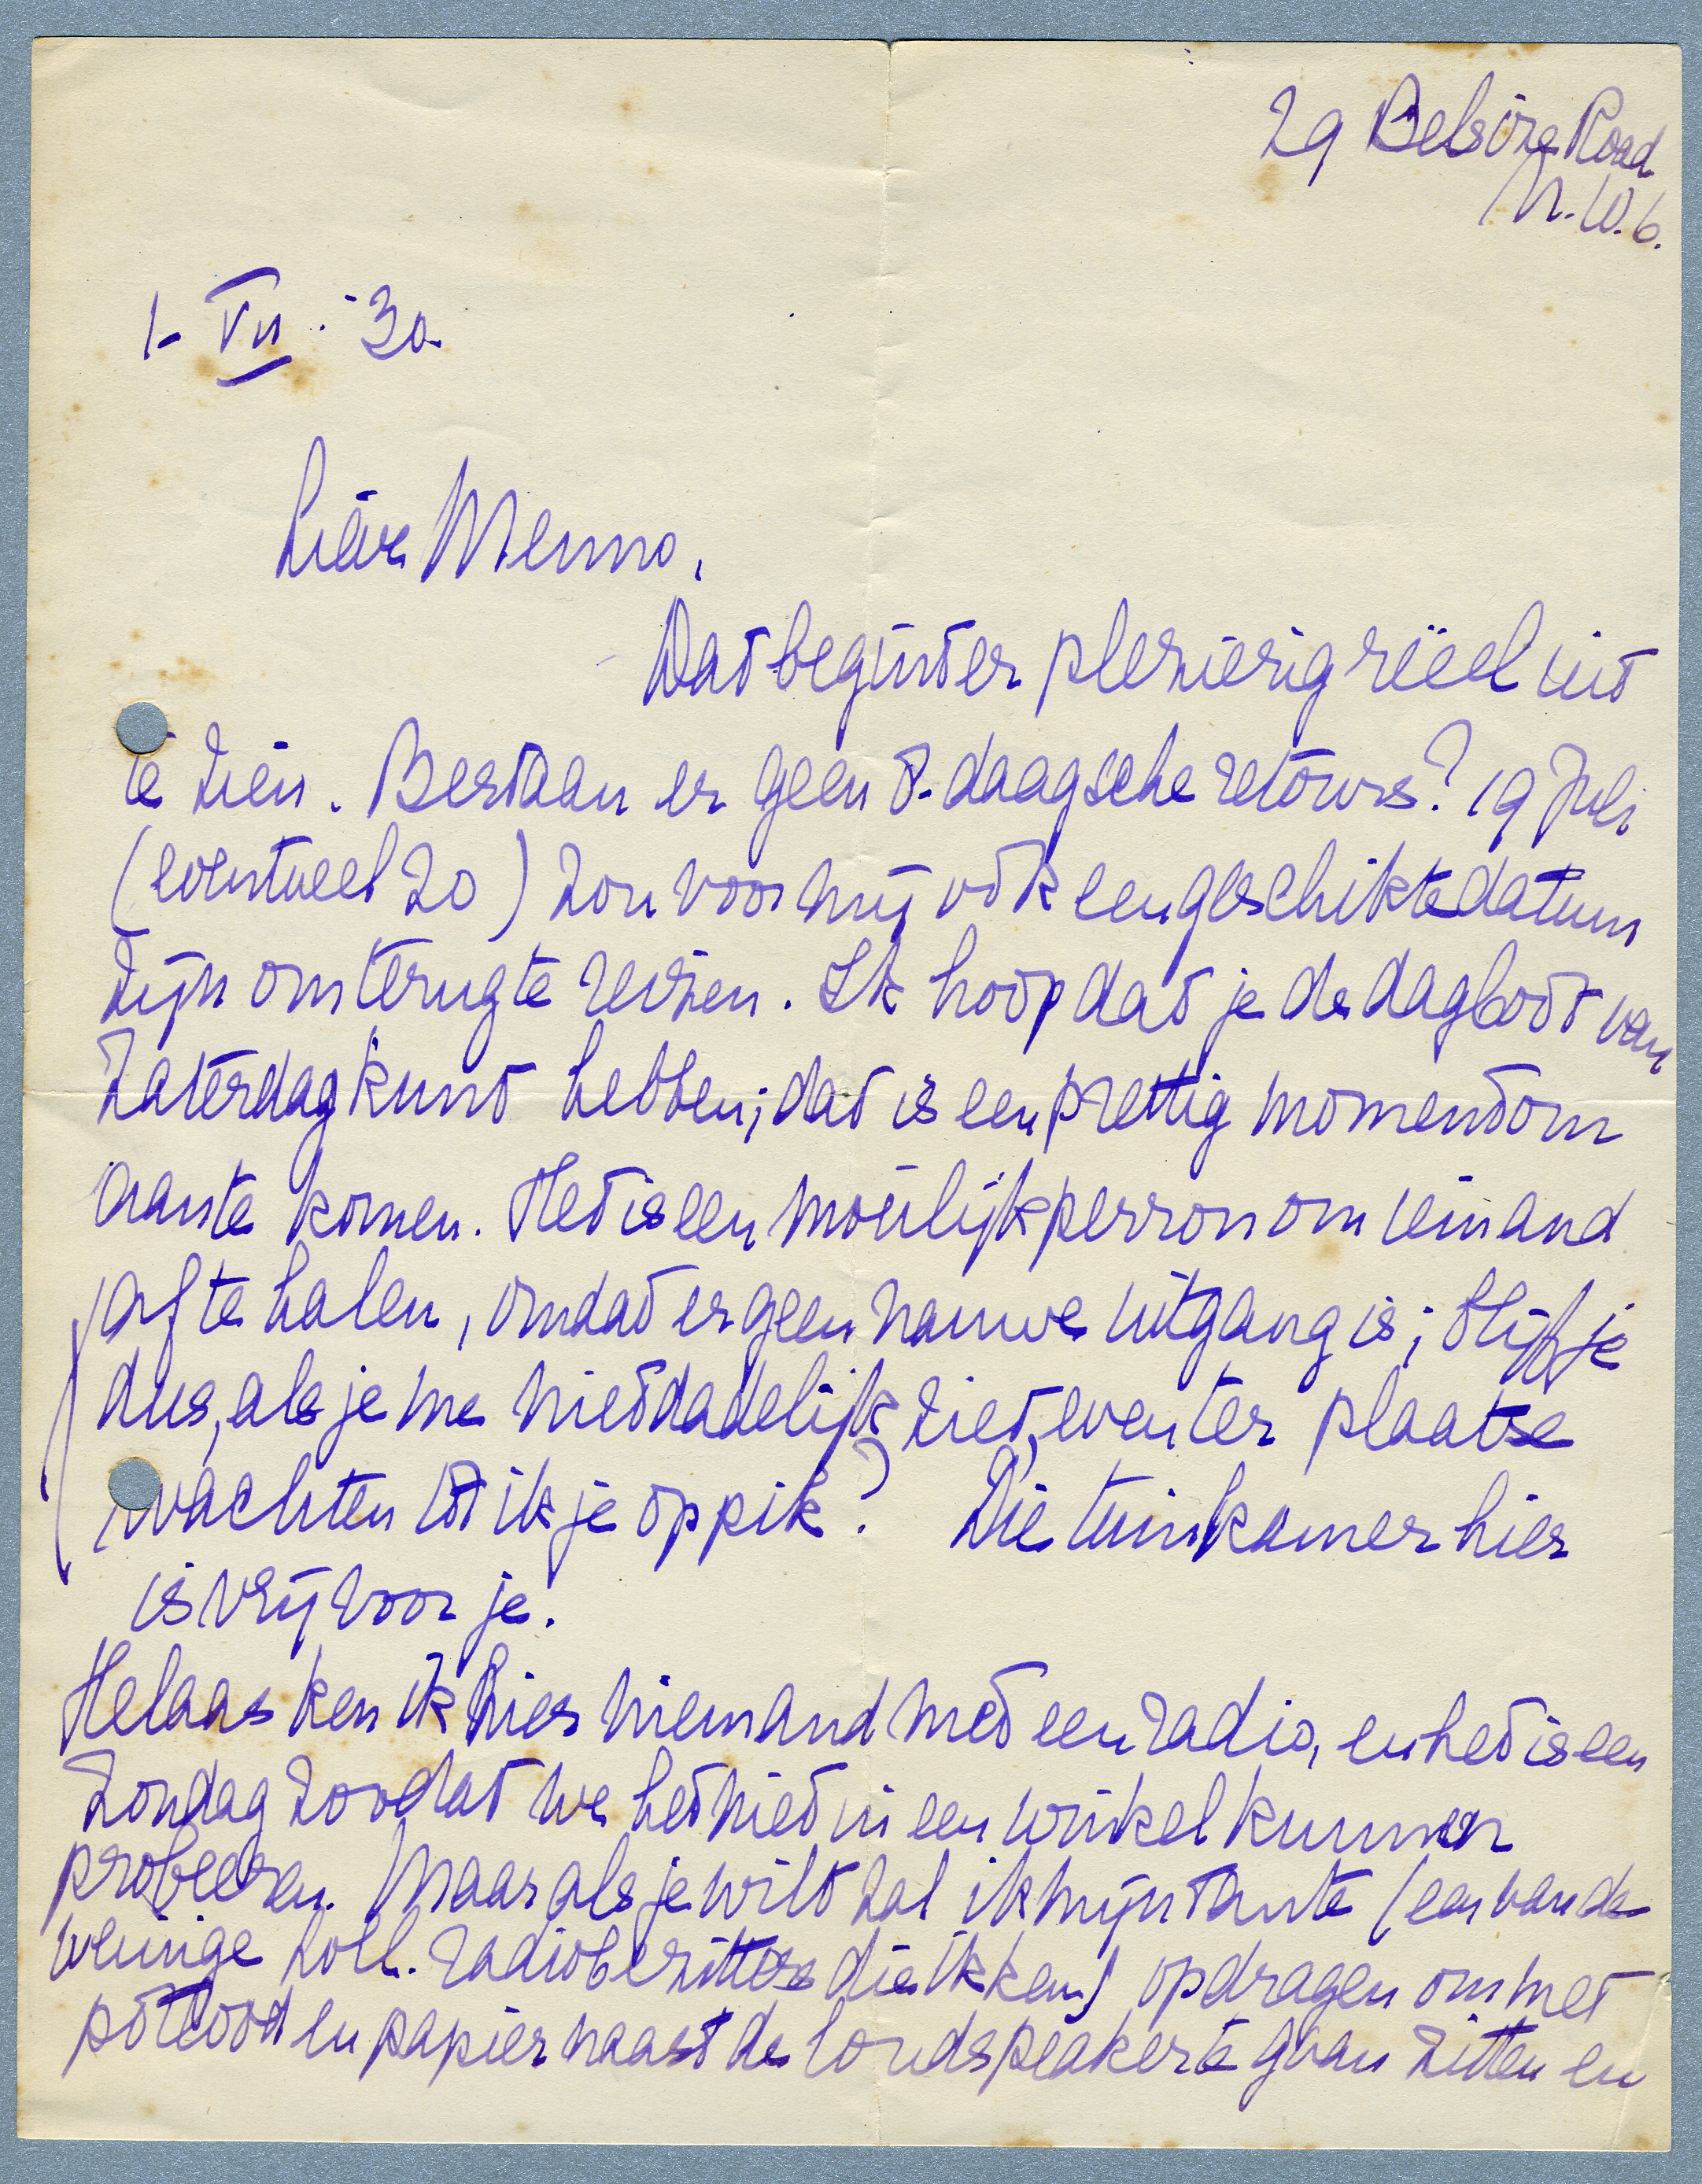 29 Belsize Road
N.W.6.
1-VII.-30.
Lieve Menno,
Dat begint er plezierig reëel uit
te zien. Bestaan er geen 8-daagsche retours? 19 Juli
(eventueel 20) zou voor mij ook een geschikte datum
zijn om terug te reizen. Ik hoop dat je de dagboot van
Zaterdag kunt hebben; dat is een prettig moment om
aan te komen. Het is een moeilijk perron om iemand
af te halen, omdat er geen nauwe uitgang is; blijf je
dus, als je me niet dadelijk ziet, even ter plaatse
wachten tot ik je oppik? Die tuinkamer hier
is vrij voor je.
Helaas ken ik hier niemand met een radio, en het is een
Zondag zoodat we het niet in een winkel kunnen
probeeren. Maar als je wilt zal ik mijn tante (een van de
weinige holl. radiobezitters die ik ken) opdragen om met
potlood en papier naast de loudspeaker te gaan zitten en